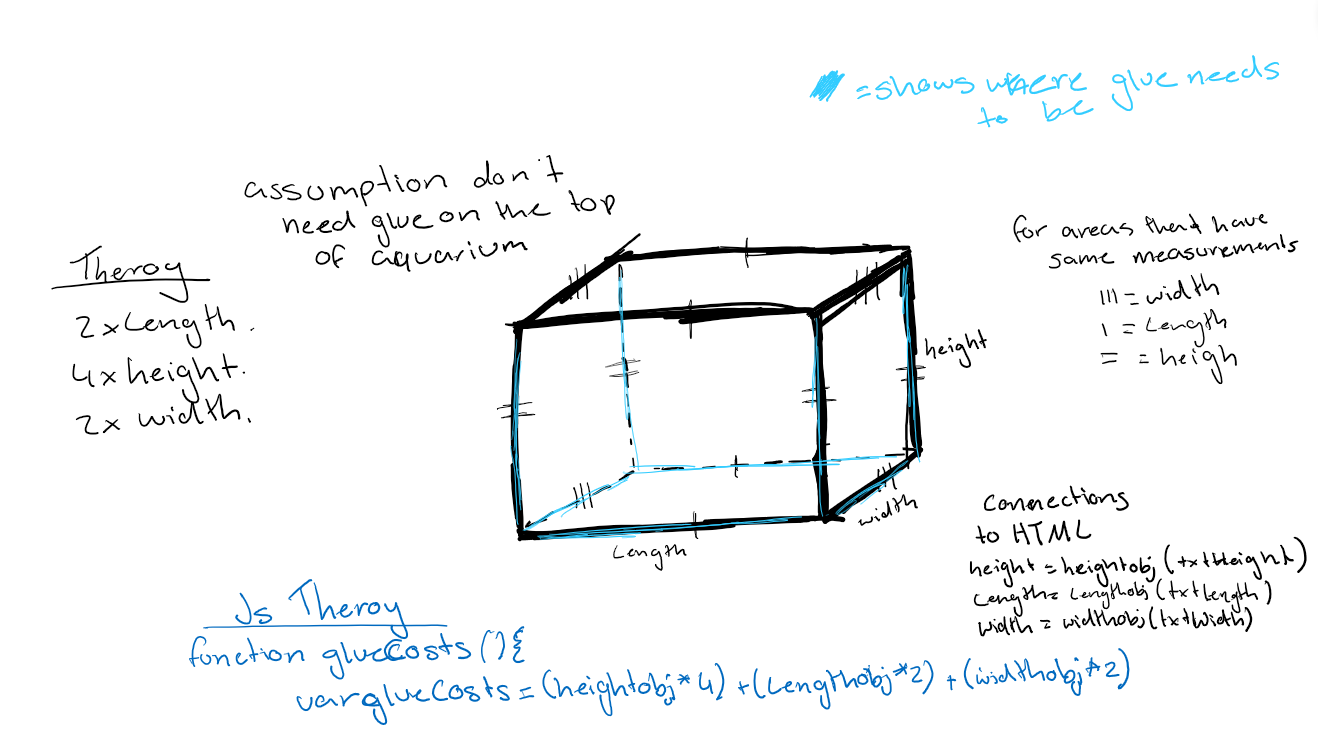 =shows where glue needs
to be
assumption don't
need glue on the top
of aquarium
Theroy
2xLength.
4xheight.
2x width.
for areas that have
same measurements
III = width
I = Length
= = heigh
height
width
Length
Connections
to HTML
height = heightobj (txtHeight)
Length = Lengthobj (txtLength)
width = widthobj (txtWidth)
Js Theroy
function glueCosts () {
var glueCosts = (heightobj * 4) + (Lengthobj * 2) + (widthobj * 2)